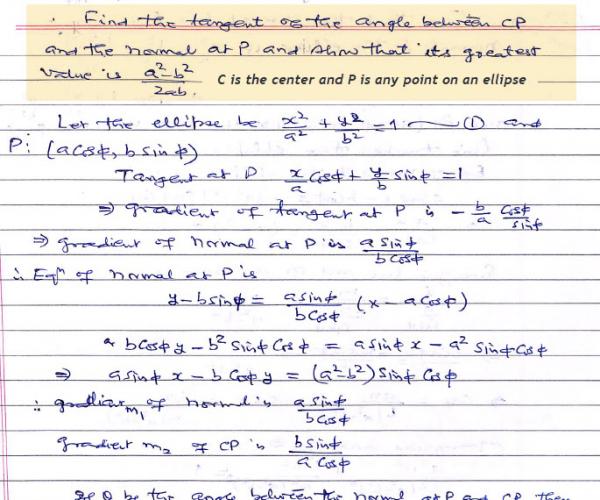 . Find the tangent of the angle between CP
and the normal at P and show that its greatest
value is a²-b²/2ab. C is the center and P is any point on an ellipse
Let the ellipse be x²/a² + y²/b² = 1 — ① and
P: (a cosϕ, b sinϕ)
Tangent at P x/a cosϕ + y/b sinϕ = 1
⇒ gradient of tangent at P is - b/a cosϕ/sinϕ
⇒ gradient of normal at P is a sinϕ/b cosϕ
∴ Eqⁿ of normal at P is
y - b sinϕ = a sinϕ/b cosϕ (x - a cosϕ)
b cosϕ y - b² sinϕ cosϕ = a sinϕ x - a² sinϕ cosϕ
⇒ a sinϕ x - b cosϕ y = (a²-b²) sinϕ cosϕ
∴ gradient m₁ of normal is a sinϕ/b cosϕ
gradient m₂ of CP is b sinϕ/a cosϕ
If θ be the angle between the normal at P and CP then